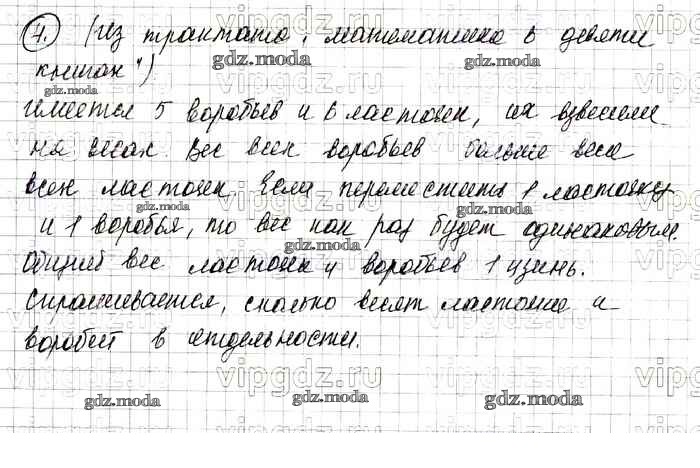 7. (Из трактата "математика в девяти
книгах")
имеется 5 воробьев и 6 ласточек, их взвесили
на весах. Вес всех воробьев больше веса
всех ласточек. Если переместить 1 ласточку
и 1 воробья, то вес как раз будет одинаковым.
Общий вес ласточек и воробьев 1 цзинь.
Спрашивается, сколько весят ласточка и
воробей в отдельности.
vipgdz.ru
gdz.moda